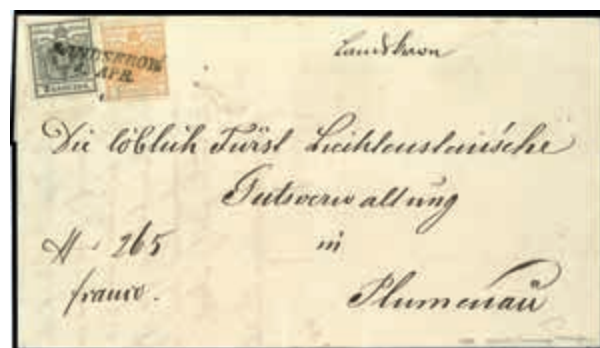 Landskron
LANDSKRON
2. APR.
Die löblich Fürst Liechtensteinische
Gutsverwaltung
N. 265
in
franco.
Plumenau